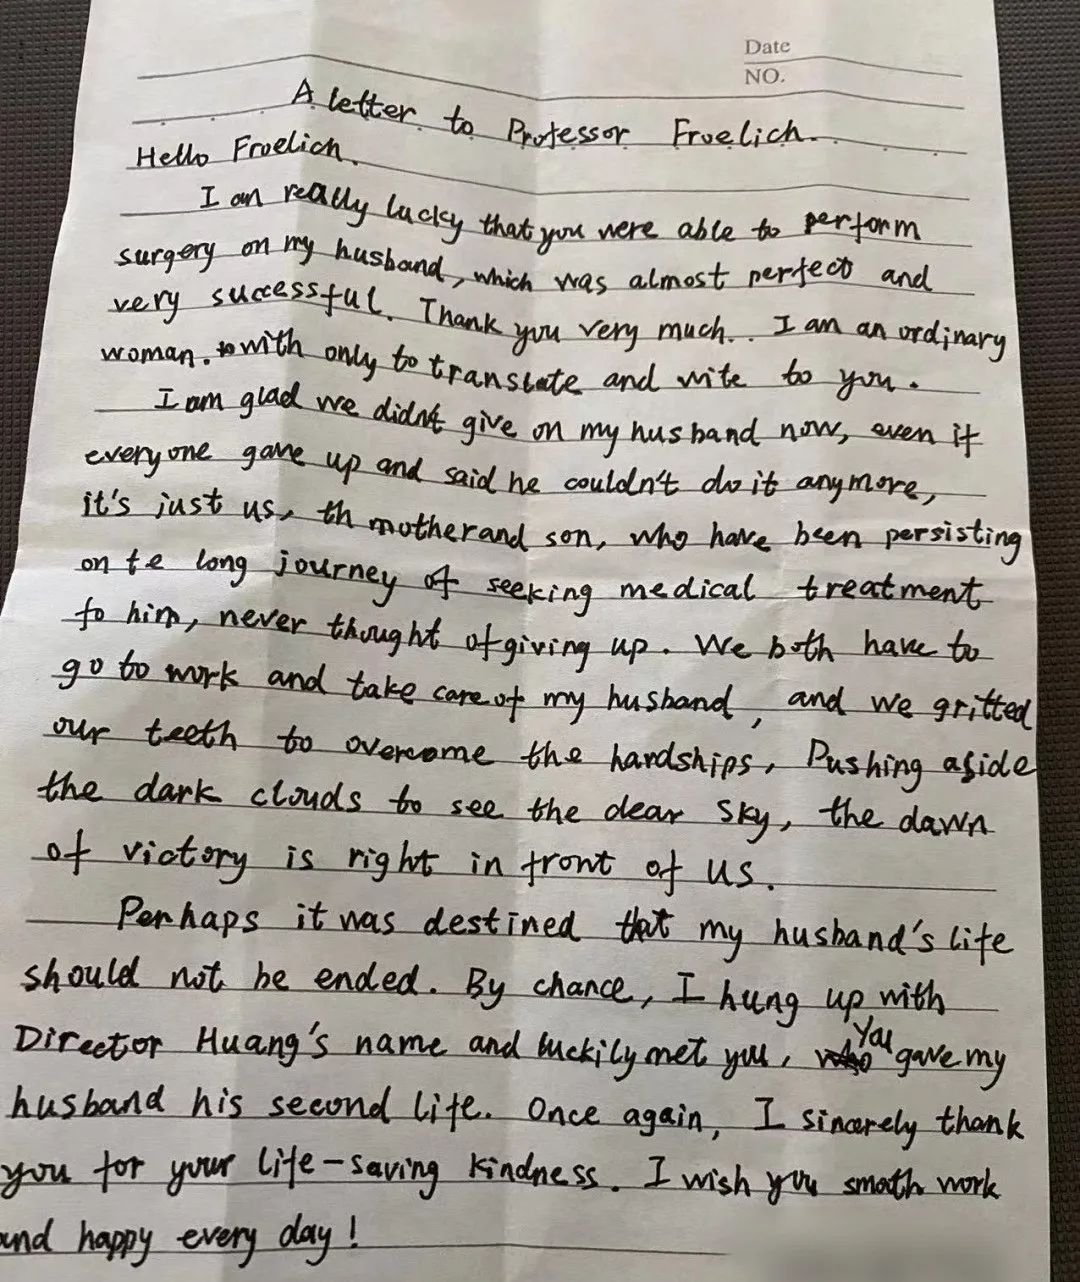 Date
NO.
A letter to Professor Froelich.
Hello Froelich.
I am really lucky that you were able to perform
surgery on my husband, which was almost perfect and
very successful. Thank you very much.. I am an ordinary
woman. with only to translate and write to you.
I am glad we didn't give on my husband now, even if
everyone gave up and said he couldn't do it anymore,
it's just us, th mother and son, who have been persisting
on te long journey of seeking medical treatment
fo him, never thought of giving up. We both have to
go to work and take care of my husband, and we gritted
our teeth to overcome the hardships, Pushing aside
the dark clouds to see the dear sky, the dawn
of victory is right in front of us.
Perhaps it was destined that my husband's life
should not be ended. By chance, I hung up with
Director Huang's name and luckily met you, You gave my
husband his second life. Once again, I sincerely thank
you for your life-saving kindness. I wish you smooth work
and happy every day!